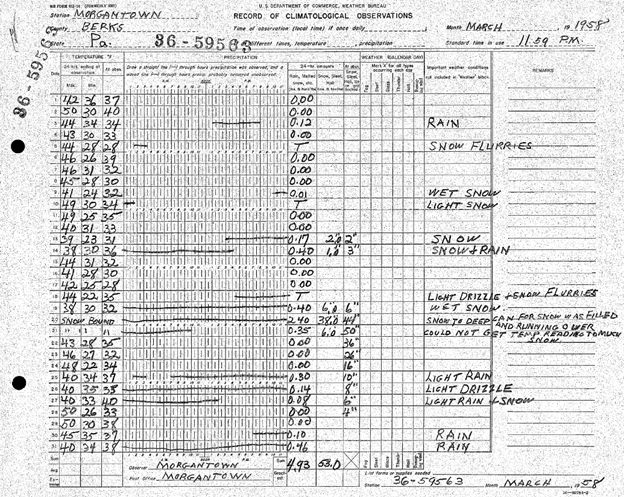 U. S. DEPARTMENT OF COMMERCE, WEATHER BUREAU
Station MORGANTOWN
RECORD OF CLIMATOLOGICAL OBSERVATIONS
County BERKS
Time of observation (local time) if once daily
Month MARCH 1958
State Pa. 36-59563
if different times, temperature ; precipitation
Standard time in use 11.59 P.M.
36-59563
TEMPERATURE °F PRECIPITATION WEATHER (CALENDAR DAY) REMARKS
1 42 36 37 0.00
2 50 30 40 0.00
3 44 34 34 0.12 RAIN
4 43 30 33 0.00
5 44 28 28 T SNOW FLURRIES
6 46 26 39 0.00
7 46 31 32 0.00
8 45 28 30 0.00
9 41 24 32 0.01 WET SNOW
10 49 30 34 T LIGHT SNOW
11 49 25 35 0.00
12 40 31 33 0.00
13 39 23 31 0.17 2.0 2" SNOW
14 38 30 36 0.40 1.0 3" SNOW & RAIN
15 44 31 32 0.00
16 41 28 30 0.00
17 42 25 28 0.00
18 44 22 35 T LIGHT DRIZZLE & SNOW FLURRIES
19 38 30 32 0.40 6.0 6" WET SNOW
20 SNOW BOUND 2.40 38.0 44" SNOW TO DEEP CAN FOR SNOW WAS FILLED
AND RUNNING OVER
21 " " 0.35 6.0 50" COULD NOT GET TEMP. READING TO MUCH
SNOW
22 43 28 35 0.00 36"
23 46 27 32 0.00 26"
24 48 22 34 0.00 16"
25 40 34 37 0.30 10" LIGHT RAIN
26 40 35 38 0.14 8" LIGHT DRIZZLE
27 40 33 40 0.08 6" LIGHT RAIN & SNOW
28 50 26 33 0.00 4"
29 50 30 38 0.00
30 45 35 37 0.10 RAIN
31 40 34 38 0.46 RAIN
Sum 4.93 53.0
Observer MORGANTOWN
Post Office MORGANTOWN
List forms or supplies needed
Station 36-59563 Month MARCH 1958